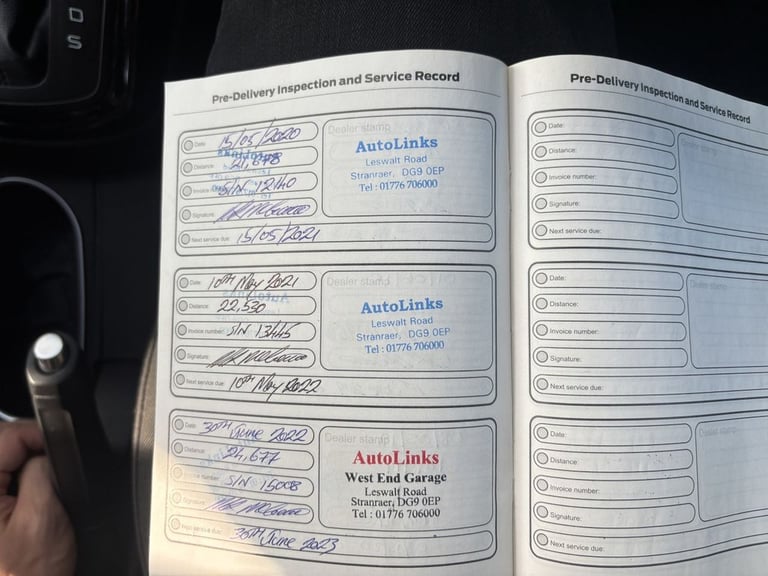 D
S
Pre-Delivery Inspection and Service Record
Date: 15/05/2020
Distance: 21,878
Invoice S/N 12140
Signature:
Next service due: 15/05/2021
Dealer stamp
AutoLinks
Leswalt Road
Stranraer, DG9 0EP
Tel : 01776 706000
Date: 10TH May 2021
Distance: 22,530
Invoice number: S/N 13445
Signature:
Next service due: 10TH May 2022
Dealer stamp
AutoLinks
Leswalt Road
Stranraer, DG9 0EP
Tel : 01776 706000
Date: 30TH June 2022
Distance: 24,677
number: S/N 15008
Signature:
Next service due: 30TH June 2023
Dealer stamp
AutoLinks
West End Garage
Leswalt Road
Stranraer, DG9 0EP
Tel : 01776 706000
Pre-Delivery Inspection and Service Record
Date:
Distance:
Invoice number:
Signature:
Next service due:
Date:
Distance:
Invoice number:
Signature:
Next service due:
Dealer stamp
Date:
Distance:
Invoice number:
Signature:
Next service due:
Dealer